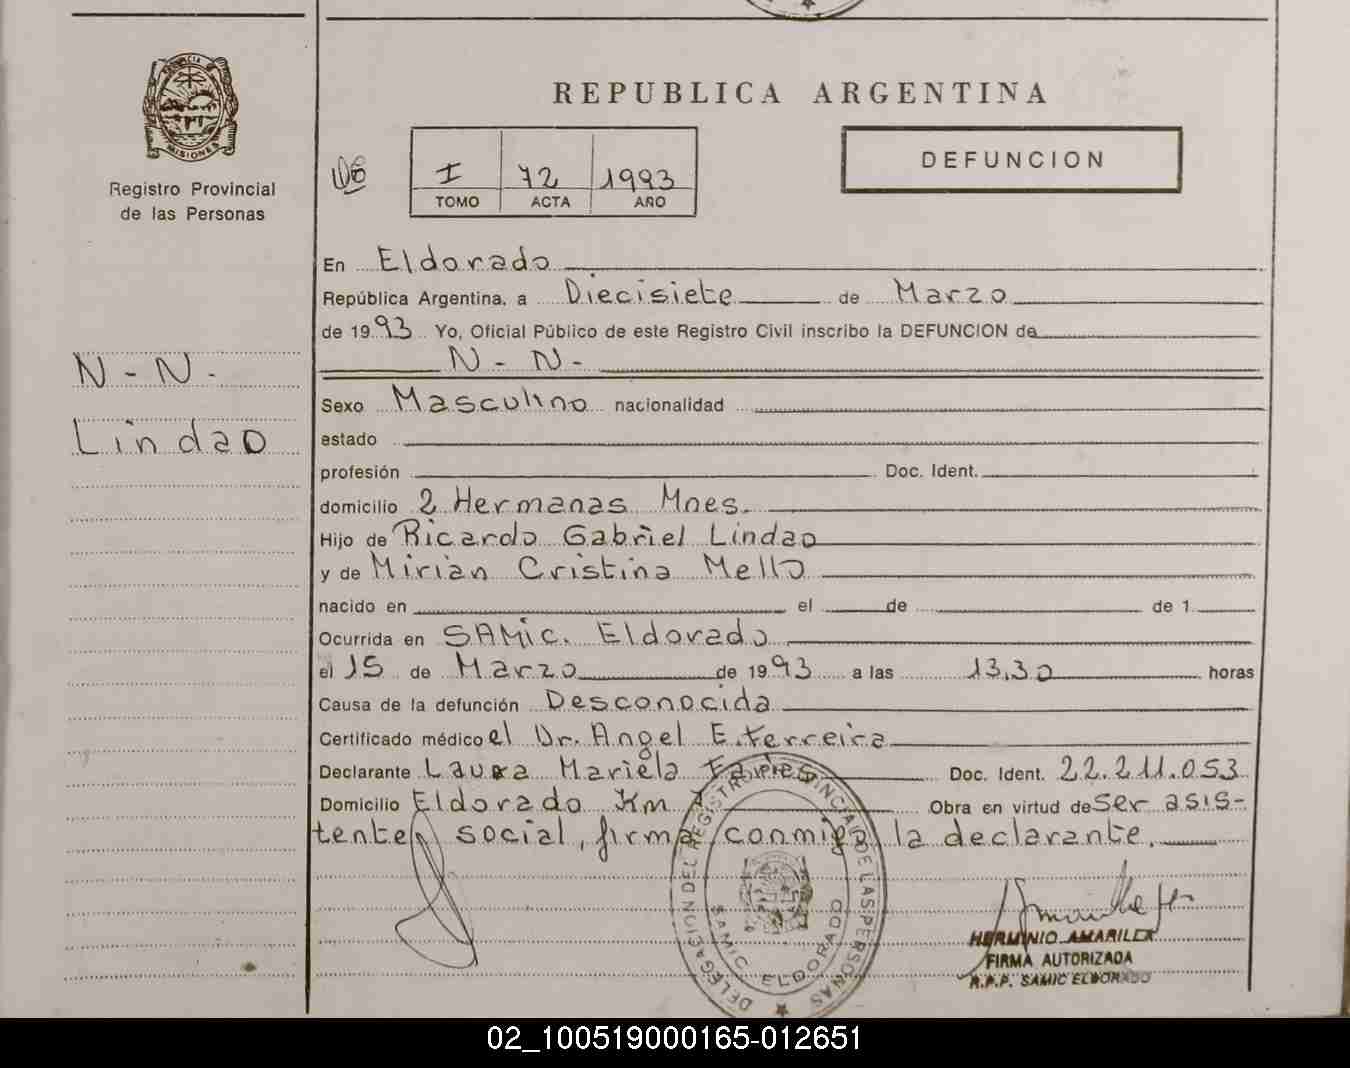 PROVINCIA
MISIONES
Registro Provincial
de las Personas
N - N -
Lindao
REPUBLICA ARGENTINA
DEFUNCION
I 72 1993
TOMO ACTA AÑO
En Eldorado
República Argentina, a Diecisiete de Marzo
de 1993 Yo, Oficial Público de este Registro Civil inscribo la DEFUNCION de
N - N -
Sexo Masculino nacionalidad
estado
profesión Doc. Ident.
domicilio 2 Hermanas Mnes.
Hijo de Ricardo Gabriel Lindao
y de Mirian Cristina Mello
nacido en el de de 1
Ocurrida en SAMic. Eldorado
el 15 de Marzo de 1993 a las 13,30 horas
Causa de la defunción Desconocida
Certificado médico el Dr. Angel E. Ferreira
Declarante Laura Mariela Doc. Ident. 22.211.053
Domicilio Eldorado Km Obra en virtud de ser asis-
tente social, firma conmigo la declarante.
DELEGACION DEL REGISTRO PROVINCIAL DE LAS PERSONAS
SAMIC ELDORADO
HERMINIO AMARILLA
FIRMA AUTORIZADA
R.P.P. SAMIC ELDORADO
02_100519000165-012651